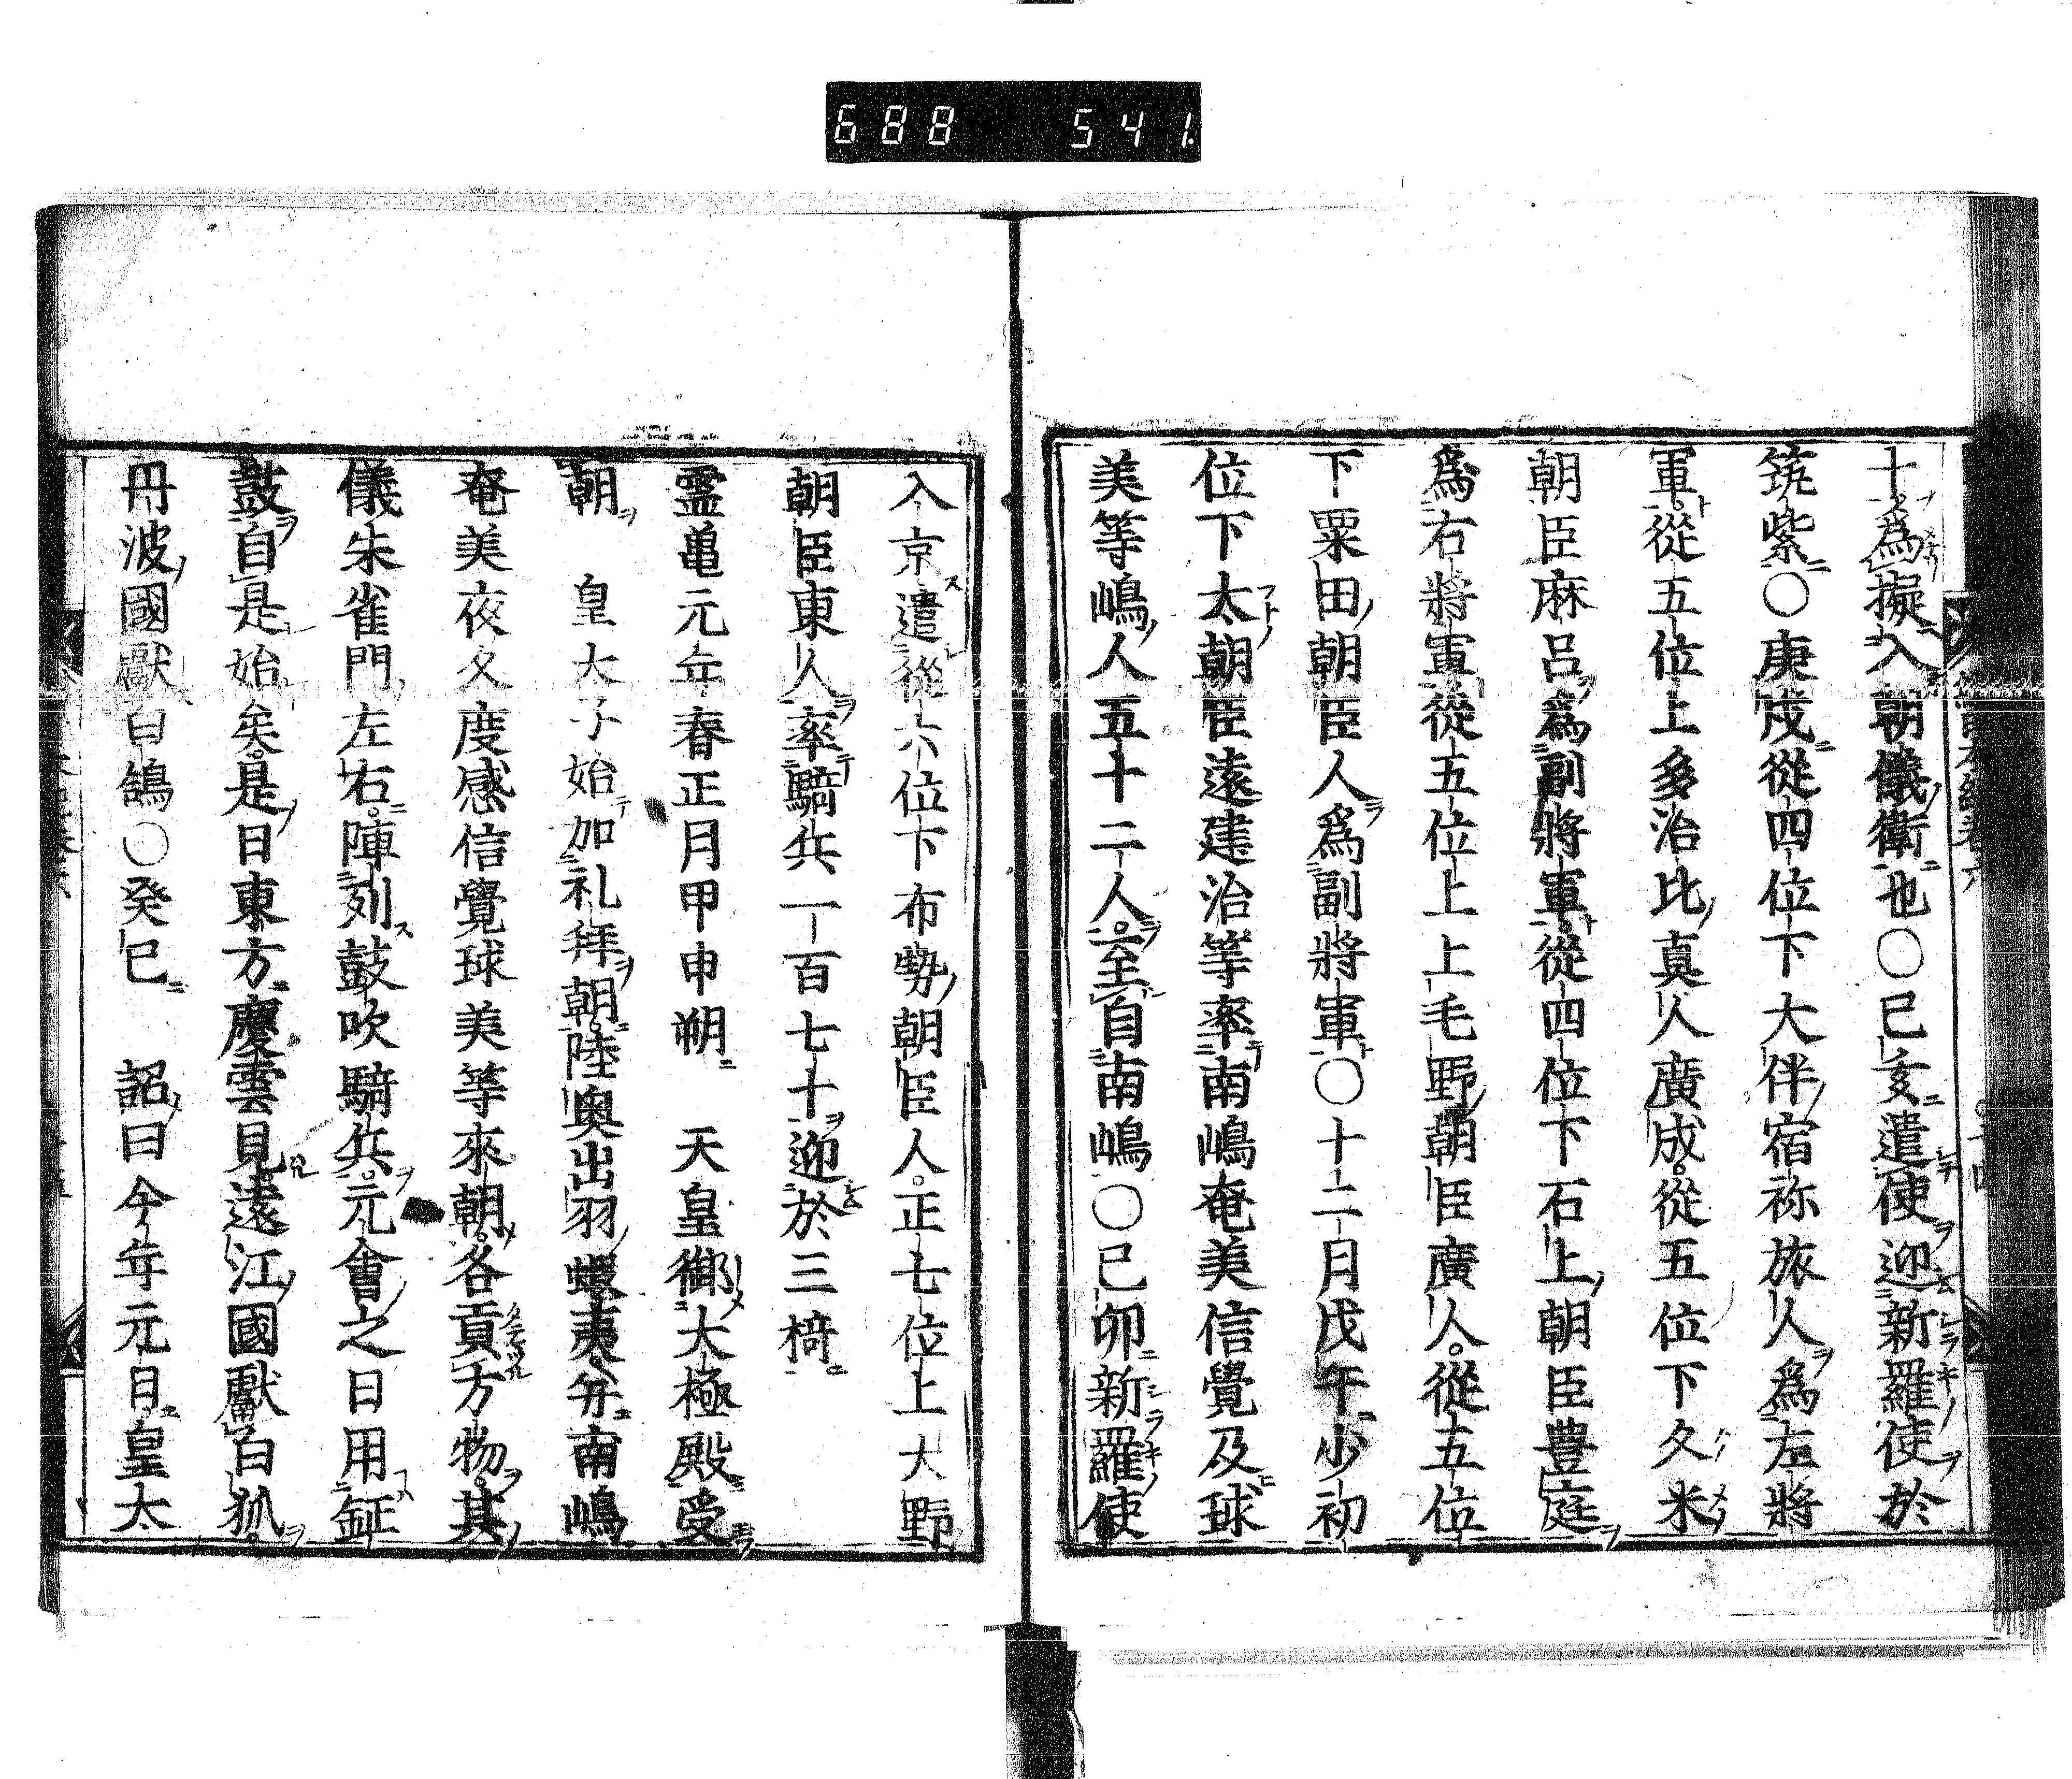 688 541.
十爲擬入朝儀衛也○已亥遣使迎新羅使於
筑紫○庚戌從四位下大伴宿祢旅人爲左將
軍從五位上多治比真人廣成從五位下久米
朝臣麻呂爲副將軍從四位下石上朝臣豊庭
爲右將軍從五位上上毛野朝臣廣人從五位
下粟田朝臣人爲副將軍○十二月戊午少初
位下太朝臣遠建治等率南嶋奄美信覺及球
美等嶋人五十二人至自南嶋○已卯新羅使
入京遣從六位下布勢朝臣人正七位上大野
朝臣東人率騎兵一百七十迎於三椅
靈亀元年春正月甲申朔 天皇御大極殿受
朝 皇大子始加礼拜朝陸奥出羽蝦夷并南嶋
奄美夜久度感信覺球美等來朝各貢方物其
儀朱雀門左右陣列鼓吹騎兵元會之日用鉦
鼓自是始矣是日東方慶雲見遠江國獻白狐
丹波國獻白鴿○癸巳 詔曰今年元日皇太